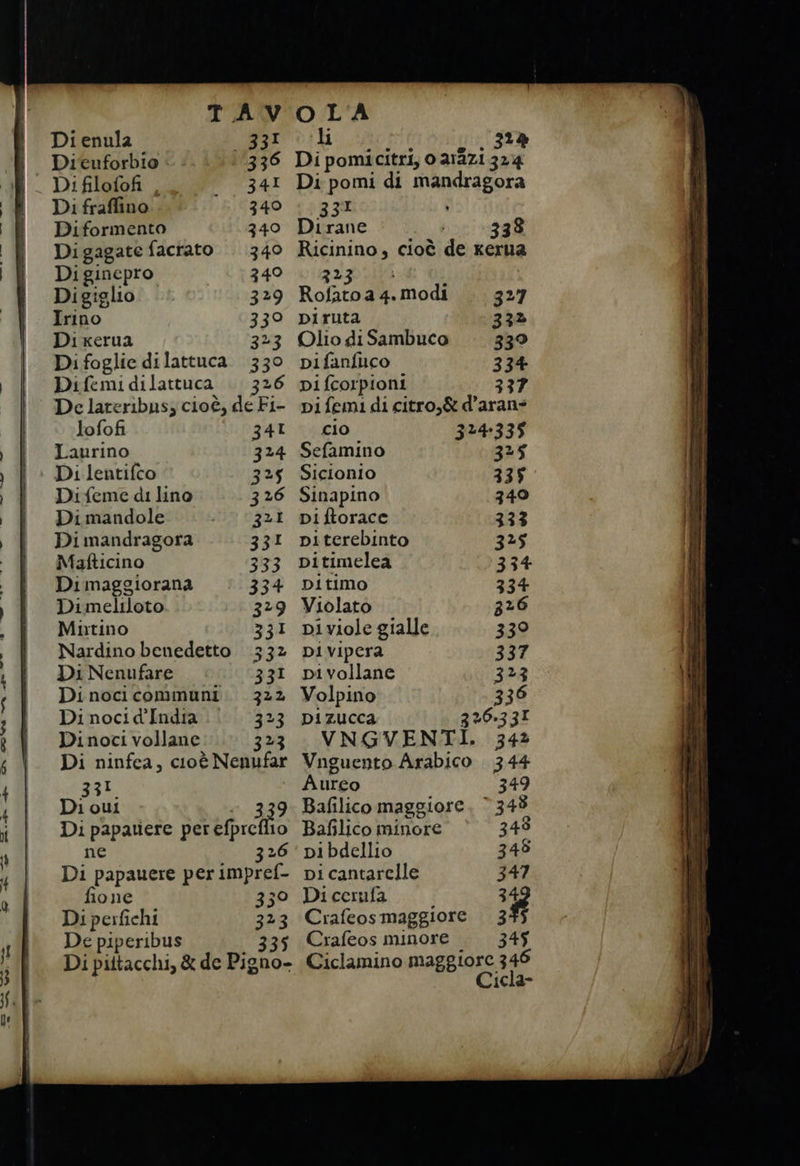 TAVOLA
Di enula 331
Di euforbio 336
Di filoſofi 341
Di fraſſino 340
Di formento 340
Di gagate ſacrato 340
Di ginepro 340
Di giglio 329
Irino 330
Di xerua 323
Di foglie di lattuca 330
Di ſemi di lattuca 326
De lateribus, cioè, de Fi-
loſofi 341
Laurino 324
Di lentiſco 325
Di ſeme di lino 326
Di mandole 321
Di mandragora 331
Maſticino 333
Di maggiorana 334
Di meliloto 329
Mirtino 331
Nardino benedetto 332
Di Nenufare 331
Di noci communi 322
Di noci d'India 323
Di noci vollane 323
Di ninfea, cioè Nenufar
331
Di oui 339
Di papauere per eſpreſſio
ne 326
Di papauere per impreſ-
ſione 330
Di perſichi 323
De piperibus 335
Di pittacchi, & de Pigno-
li 324
Di pomi citri, o arãzi 324
Di pomi di mandragora
331
Di rane 338
Ricinino, cioè de xerua
323
Roſato a 4. modi 327
Di ruta 332
Olio di Sambuco 330
Di ſanſuco 334
Di ſcorpioni 337
Di ſemi di citro, & d'aran-
cio 324.335
Seſamino 325
Sicionio 335
Sinapino 340
Di ſtorace 333
Di terebinto 325
Di timelea 334
Di timo 334
Violato 326
Di viole gialle 330
Di vipera 337
Di vollane 323
Volpino 336
Di zucca 326.331
VNGVENTI. 342
Vnguento Arabico 344
Aureo 349
Baſilico maggiore 348
Baſilico minore 348
Di bdellio 348
Di cantarelle 347
Di ceruſa 349
Craſeos maggiore
Craſeos minore 345
Ciclamino maggiore 346
Cicla-